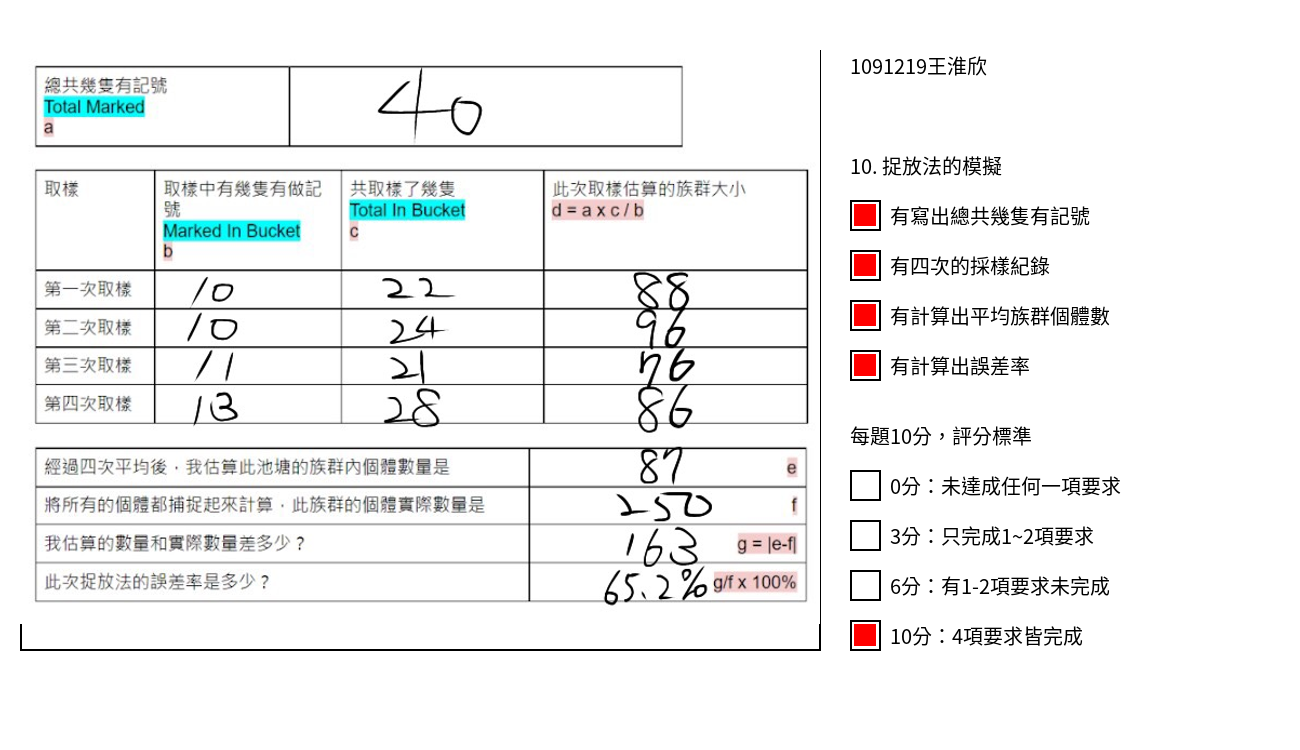 總共幾隻有記號
Total Marked
a
40
取樣
取樣中有幾隻有做記
號
Marked In Bucket
b
共取樣了幾隻
Total In Bucket
c
此次取樣估算的族群大小
d = a x c / b
第一次取樣 10 22 88
第二次取樣 10 24 96
第三次取樣 11 21 76
第四次取樣 13 28 86
經過四次平均後，我估算此池塘的族群內個體數量是 87 e
將所有的個體都捕捉起來計算，此族群的個體實際數量是 250 f
我估算的數量和實際數量差多少？ 163 g = |e-f|
此次捉放法的誤差率是多少？ 65.2% g/f x 100%
1091219王淮欣
10. 捉放法的模擬
有寫出總共幾隻有記號
有四次的採樣紀錄
有計算出平均族群個體數
有計算出誤差率
每題10分，評分標準
0分：未達成任何一項要求
3分：只完成1~2項要求
6分：有1-2項要求未完成
10分：4項要求皆完成